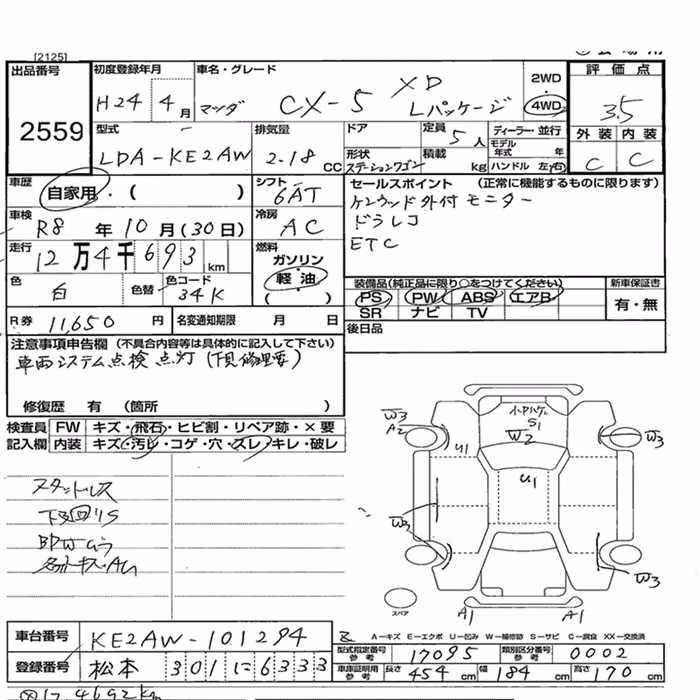 [2125]
出品番号
2559
初度登録年月
H24 4月
車名・グレード
マツダ CX-5 XD Lパッケージ
2WD
・
4WD
評価点
3.5
外装 内装
C C
型式
LDA-KE2AW
排気量
2.18 CC
ドア
形状
ステーションワゴン
定員
5人
積載
kg
ディーラー・並行
モデル
年式 年
ハンドル 左・右
車歴
自家用・( )
シフト
6AT
車検
R8年10月(30日)
冷房
AC
走行
12万4千693km
燃料
ガソリン
軽油
( )
色
白
色替
色コード
34K
R券 11,650円
名変通知期限 月 日
セールスポイント (正常に機能するものに限ります)
ケンウッド外付モニター
ドラレコ
ETC
装備品(純正品に限り○をつけてください)
PS PW ABS エアB
SR ナビ TV
新車保証書
有・無
後日品
注意事項申告欄(不具合内容等は具体的に記入して下さい)
車両システム点検点灯(要修理要)
修復歴 有 (箇所
検査員
記入欄
FW キズ・飛石・ヒビ割・リペア跡・×要
内装 キズ・汚レ・コゲ・穴・スレ・キレ・破レ
スタッドレス
下回りS
W3
A2
U1
小キハゲ
S1
W2
U1
W3
W3
W3
スペア
A1
A1
A-キズ E-エクボ U-凹み W-補修跡 S-サビ C-腐食 XX-交換済
車台番号
KE2AW-101294
登録番号
松本 301 に 6333
型式指定番号
参考
17095
類別区分番号
参考
0002
車庫証明用
参考
長さ 454cm 幅 184cm 高さ 170cm